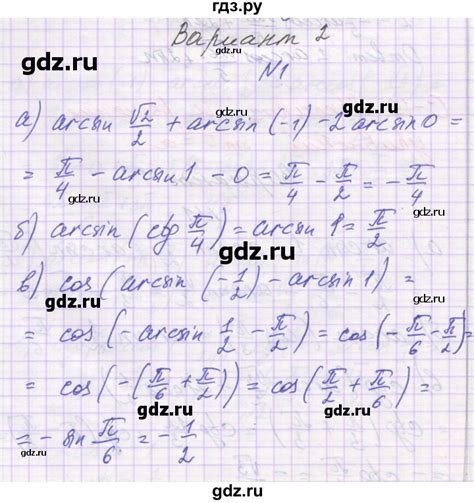 гдз.ру
Вариант 2
gdz.ru
gdz.ru
N1
а) arcsin √2/2 + arcsin (-1) - 2 arcsin 0 =
gdz.ru
gdz.ru
= π/4 - arcsin 1 - 0 = π/4 - π/2 = -π/4
gdz.ru
gdz.ru
б) arcsin (ctg π/4) = arcsin 1 = π/2
gdz.ru
gdz.ru
в) cos (arcsin (-1/2) - arcsin 1) =
gdz.ru
gdz.ru
= cos (-arcsin 1/2 - π/2) = cos (-π/6 - π/2) =
gdz.ru
gdz.ru
= cos (-(π/6 + π/2)) = cos (π/2 + π/6) =
gdz.ru
= - sin π/6 = - 1/2
gdz.ru
gdz.ru